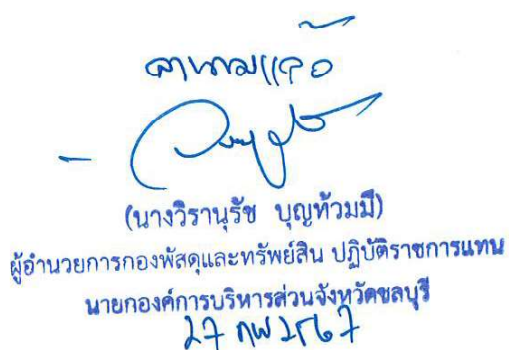 ลงนามแล้ว
(นางวิรานุรัช บุญท้วมมี)
ผู้อำนวยการกองพัสดุและทรัพย์สิน ปฏิบัติราชการแทน
นายกองค์การบริหารส่วนจังหวัดชลบุรี
27 กพ 2567